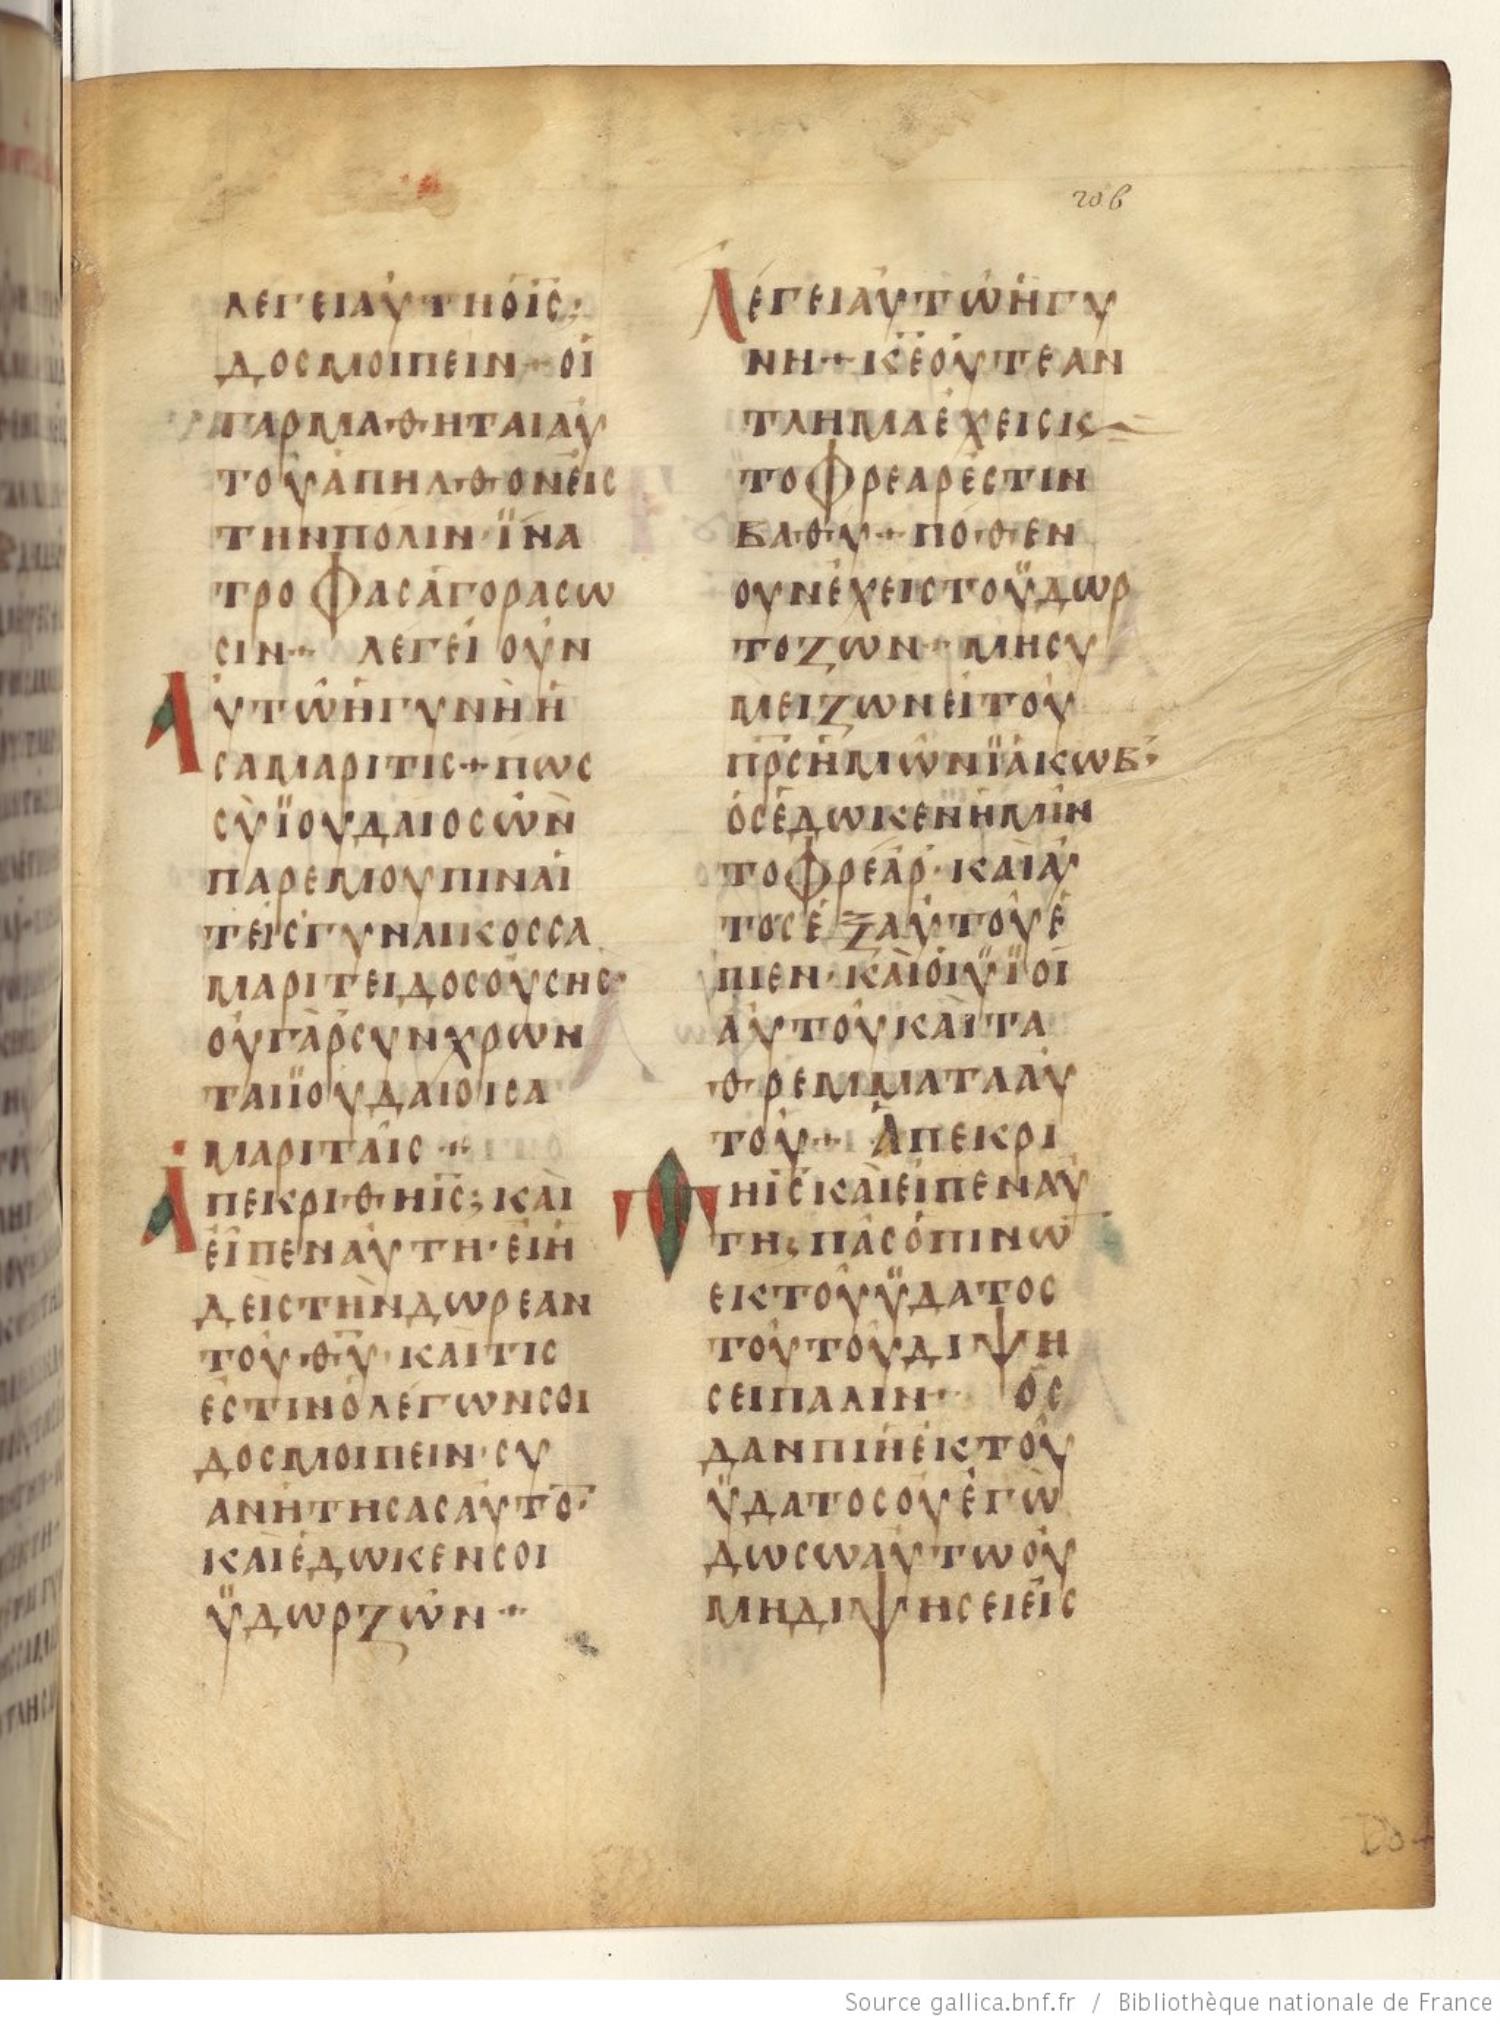 206
ΛΕΓΕΙΑΥΤΗΟΙ̅Σ̅·
ΔΟΣΜΟΙΠΕΙΝ+ΟΙ
ΓΑΡΜΑΘΗΤΑΙΑΥ
ΤΟΥΑΠΗΛΘΟΝΕΙΣ
ΤΗΝΠΟΛΙΝ·ΪΝΑ
ΤΡΟΦΑΣΑΓΟΡΑΣΩ
ΣΙΝ+ ΛΕΓΕΙΟΥΝ
ΑΥΤΩΗΓΥΝΗΗ
ΣΑΜΑΡΙΤΙΣ+ΠΩΣ
ΣΥΪΟΥΔΑΙΟΣΩΝ
ΠΑΡΕΜΟΥΠΙΝΑΙ
ΤΕΙΣΓΥΝΑΙΚΟΣΣΑ
ΜΑΡΙΤΕΙΔΟΣΟΥΣΗΣ·
ΟΥΓΑΡΣΥΝΧΡΩΝ
ΤΑΙΪΟΥΔΑΙΟΙΣΑ
ΜΑΡΙΤΑΙΣ+
ΑΠΕΚΡΙΘΗΙ̅Σ̅;ΚΑΙ
ΕΙΠΕΝΑΥΤΗ·ΕΙΗ
ΔΕΙΣΤΗΝΔΩΡΕΑΝ
ΤΟΥΘ̅Υ̅·ΚΑΙΤΙΣ
ΕΣΤΙΝΟΛΕΓΩΝΣΟΙ
ΔΟΣΜΟΙΠΕΙΝ·ΣΥ
ΑΝΗΤΗΣΑΣΑΥΤΟ̅·
ΚΑΙΕΔΩΚΕΝΣΟΙ
ΫΔΩΡΖΩΝ+
ΛΕΓΕΙΑΥΤΩΗΓΥ
ΝΗ+Κ̅Ε̅ΟΥΤΕΑΝ
ΤΛΗΜΑΕΧΕΙΣΚ
ΤΟΦΡΕΑΡΕΣΤΙΝ
ΒΑΘΥ+ΠΟΘΕΝ
ΟΥΝΕΧΕΙΣΤΟΫΔΩΡ
ΤΟΖΩΝ+ΜΗΣΥ
ΜΕΙΖΩΝΕΙΤΟΥ
Π̅Ρ̅Σ̅ΗΜΩΝΪΑΚΩΒ·
ΟΣΕΔΩΚΕΝΗΜΙΝ
ΤΟΦΡΕΑΡ·ΚΑΙΑΥ
ΤΟΣΕΞΑΥΤΟΥΕ
ΠΙΕΝ·ΚΑΙΟΙΫΪΟΙ
ΑΥΤΟΥΚΑΙΤΑ
ΘΡΕΜΜΑΤΑΑΥ
ΤΟΥ+ ΑΠΕΚΡΙ
ΘΗΙ̅Σ̅ΚΑΙΕΙΠΕΝΑΥ
ΤΗ;ΠΑΣΟΠΙΝΩ
ΕΚΤΟΥΫΔΑΤΟΣ
ΤΟΥΤΟΥΔΙΨΗ
ΣΕΙΠΑΛΙΝ+ ΟΣ
ΔΑΝΠΙΗΕΚΤΟΥ
ΫΔΑΤΟΣΟΥΕΓΩ
ΔΩΣΩΑΥΤΩΟΥ
ΜΗΔΙΨΗΣΕΙΕΙΣ
Source gallica.bnf.fr / Bibliothèque nationale de France